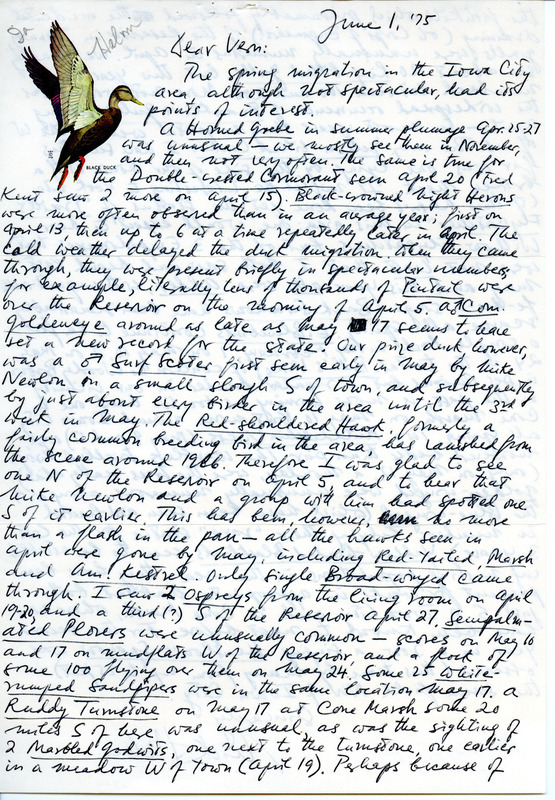 June 1, '75
Ia
Helm
Dear Vern:
The spring migration in the Iowa City
area, although not spectacular, had its
points of interest.
A Horned Grebe in summer plumage Apr. 25-27
was unusual – we mostly see them in November,
and then not very often. The same is true for
BLACK DUCK
the Double-crested Cormorant seen April 20 (Fred
Kent saw 2 more on April 15). Black-crowned Night Herons
were more often observed than in an average year: first on
April 13, then up to 6 at a time repeatedly later in April. The
cold weather delayed the duck migration. When they came
through, they were present briefly in spectacular numbers,
for example, literally tens of thousands of Pintail were
over the Reservoir on the morning of April 5. A ♂ Com.
Goldeneye around as late as May 17 seems to have
set a new record for the state. Our prize duck, however,
was a ♂ Surf Scoter first seen early in May by Mike
Newlon in a small slough S of town, and subsequently
by just about every birder in the area until the 3rd
week in May. The Red-shouldered Hawk, formerly a
fairly common breeding bird in the area, has vanished from
the scene around 1966. Therefore I was glad to see
one N of the Reservoir on April 5, and to hear that
Mike Newlon and a group with him had spotted one
S of it earlier. This has been, however, no more
than a flash in the pan – all the hawks seen in
April were gone by May, including Red-tailed, Marsh
and Am. Kestrel. Only single Broad-winged came
through. I saw 2 Ospreys from the living room on April
19-20, and a third (?) S of the Reservoir April 27. Semipalm-
ated Plovers were unusually common – scores on May 10
and 17 on mudflats W of the Reservoir, and a flock of
some 100 flying over them on May 24. Some 25 White-
rumped Sandpipers were in the same location May 17. A
Ruddy Turnstone on May 17 at Cone Marsh some 20
miles S of here was unusual, as was the sighting of
2 Marbled Godwits, one next to the turnstone, one earlier
in a meadow W of town (April 19). Perhaps because of